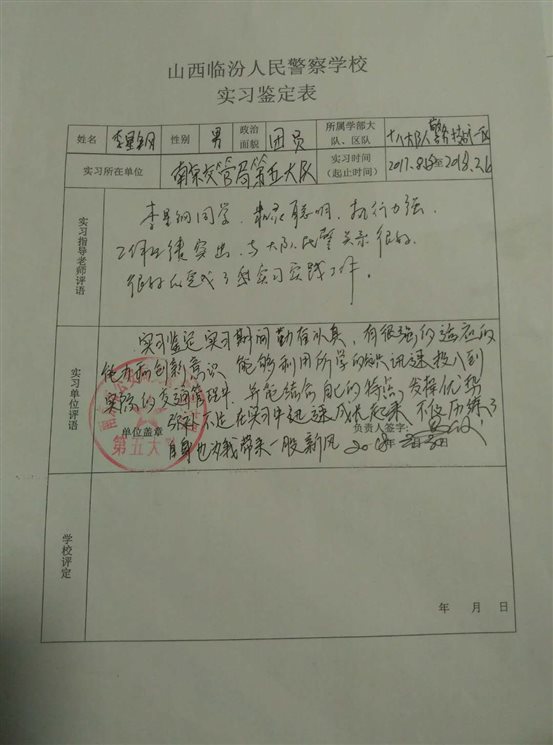 山西临汾人民警察学校
实习鉴定表
姓名 李星钢 性别 男 政治面貌 团员 所属学部大队、区队 十八大队警务技术一区
实习所在单位 南京交管局第五大队 实习时间(起止时间) 2018.2.6
实习指导老师评语
李星钢同学,聪明,执行力强,
工作成绩突出,与大队民警关系很好,
很好的完成了实习实践工作。
实习单位评语
实习期间勤奋认真,有很强的适应的
能力和创新意识,能够利用所学的知识迅速投入到
实际的交通管理中,并能结合自己的特点,发挥优势
弥补不足,在实习中迅速成长起来,不仅历练了
自身也为我带来一股新风
单位盖章
第五大
负责人签字:
学校评定
年 月 日